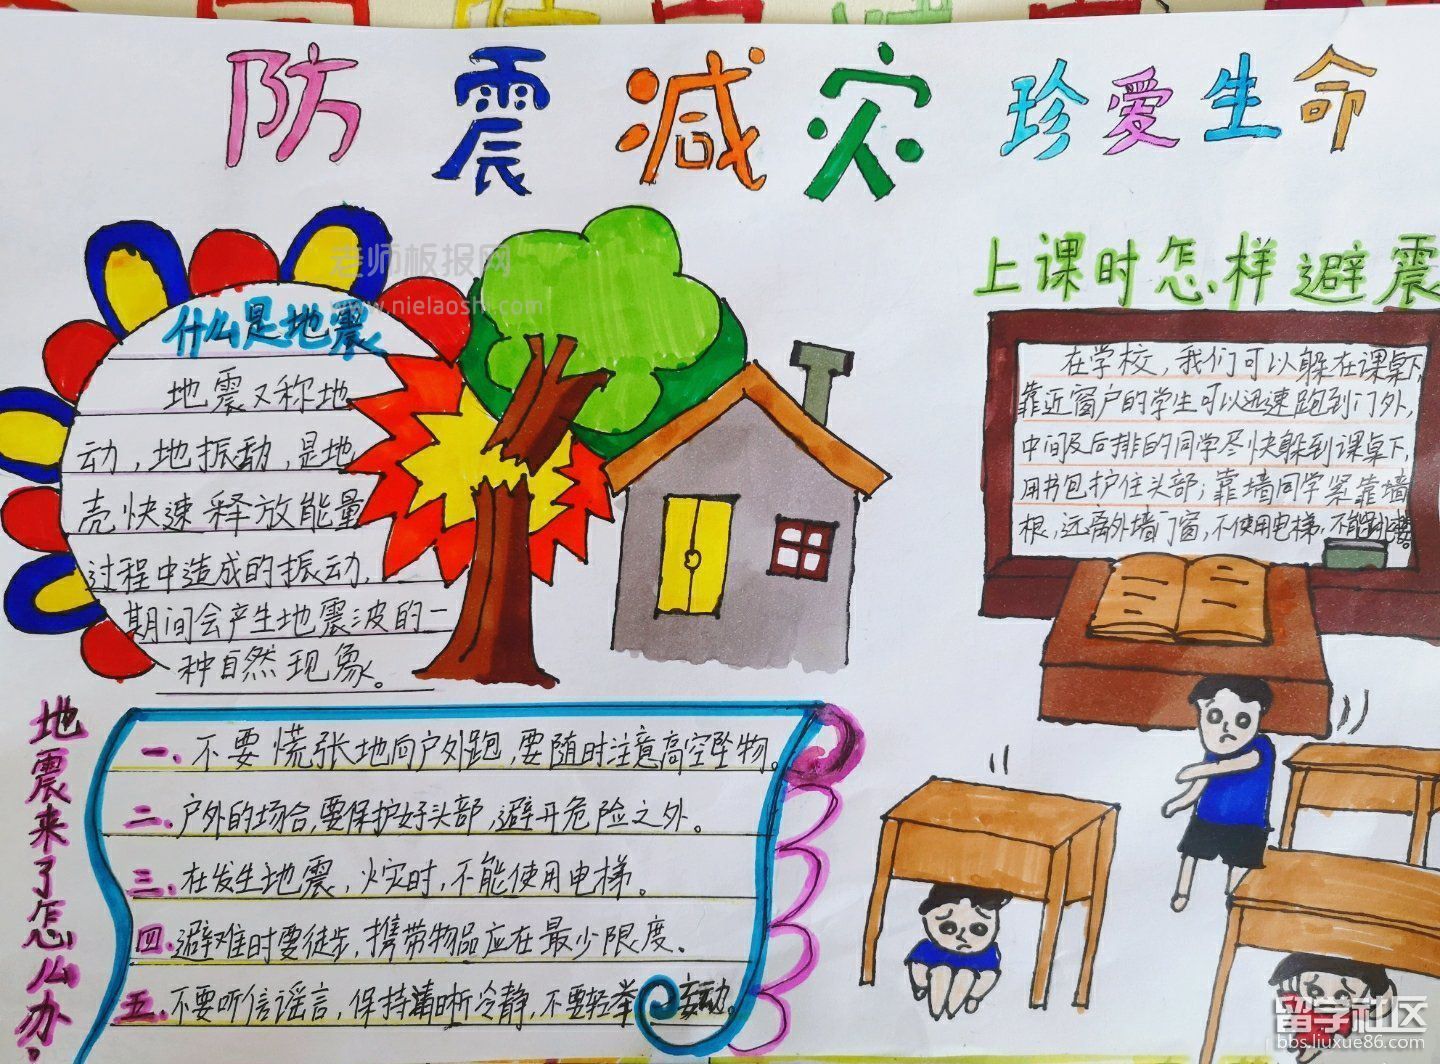 防震减灾 珍爱生命
老师板报网
www.nielaoshi.com
什么是地震
地震又称地
动，地振动，是地
壳快速释放能量
过程中造成的振动，
期间会产生地震波的一
种自然现象。
上课时怎样避震
在学校，我们可以躲在课桌下，
靠近窗户的学生可以迅速跑到门外，
中间及后排的同学尽快躲到课桌下，
用书包护住头部；靠墙同学紧靠墙
根，远离外墙门窗，不使用电梯，不能跳楼。
地震来了怎么办？
一、不要慌张地向户外跑，要随时注意高空坠物。
二、户外的场合，要保护好头部，避开危险之外。
三、在发生地震，火灾时，不能使用电梯。
四、避难时要徒步，携带物品应在最少限度。
五、不要听信谣言，保持清晰冷静，不要轻举妄动。
留学社区
bbs.liuxue86.com